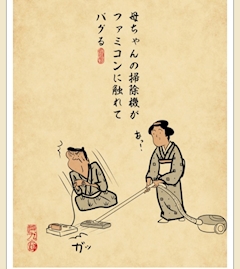 母ちゃんの掃除機が
ファミコンに触れて
バグる
あっ…
ガッ